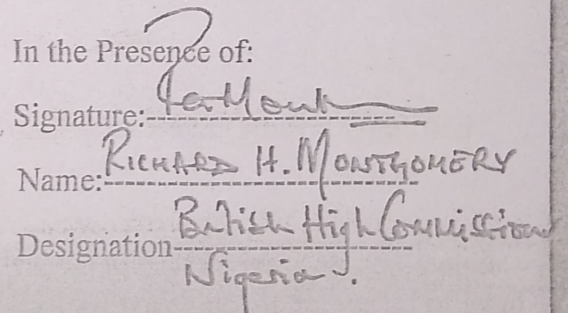 In the Presence of:
Signature:
Name: RICHARD H. MONTGOMERY
Designation British High Commission
Nigeria.